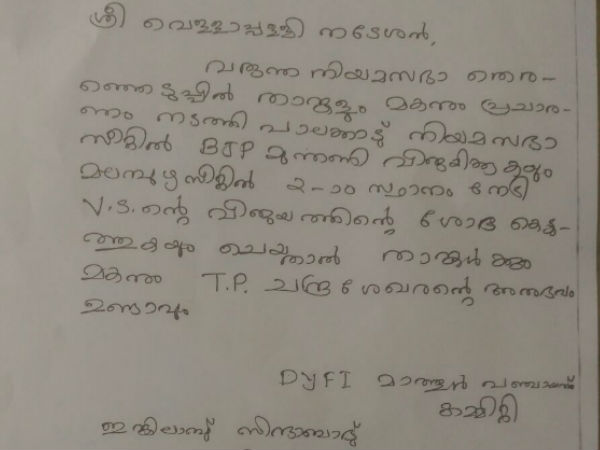 ശ്രീ വെള്ളാപ്പള്ളി നടേശൻ,
വരുന്ന നിയമസഭാ തെര-
ഞ്ഞെടുപ്പിൽ താങ്കളും മകനും പ്രചാര-
ണം നടത്തി പാലക്കാട്ട് നിയമസഭാ
സീറ്റിൽ BJP മുന്നണി വിജയിക്കുകയും
മലമ്പുഴ സീറ്റിൽ 2-ാം സ്ഥാനം നേടി
V.S.ന്റെ വിജയത്തിന്റെ ശോഭ കെടു-
ത്തുകയും ചെയ്താൽ താങ്കൾക്കും
മകനും T.P. ചന്ദ്രശേഖരന്റെ അനുഭവം
ഉണ്ടാവും
DYFI മാത്തൂർ പഞ്ചായത്ത്
കമ്മിറ്റി
ഇങ്ക്വിലാബ് സിന്ദാബാദ്